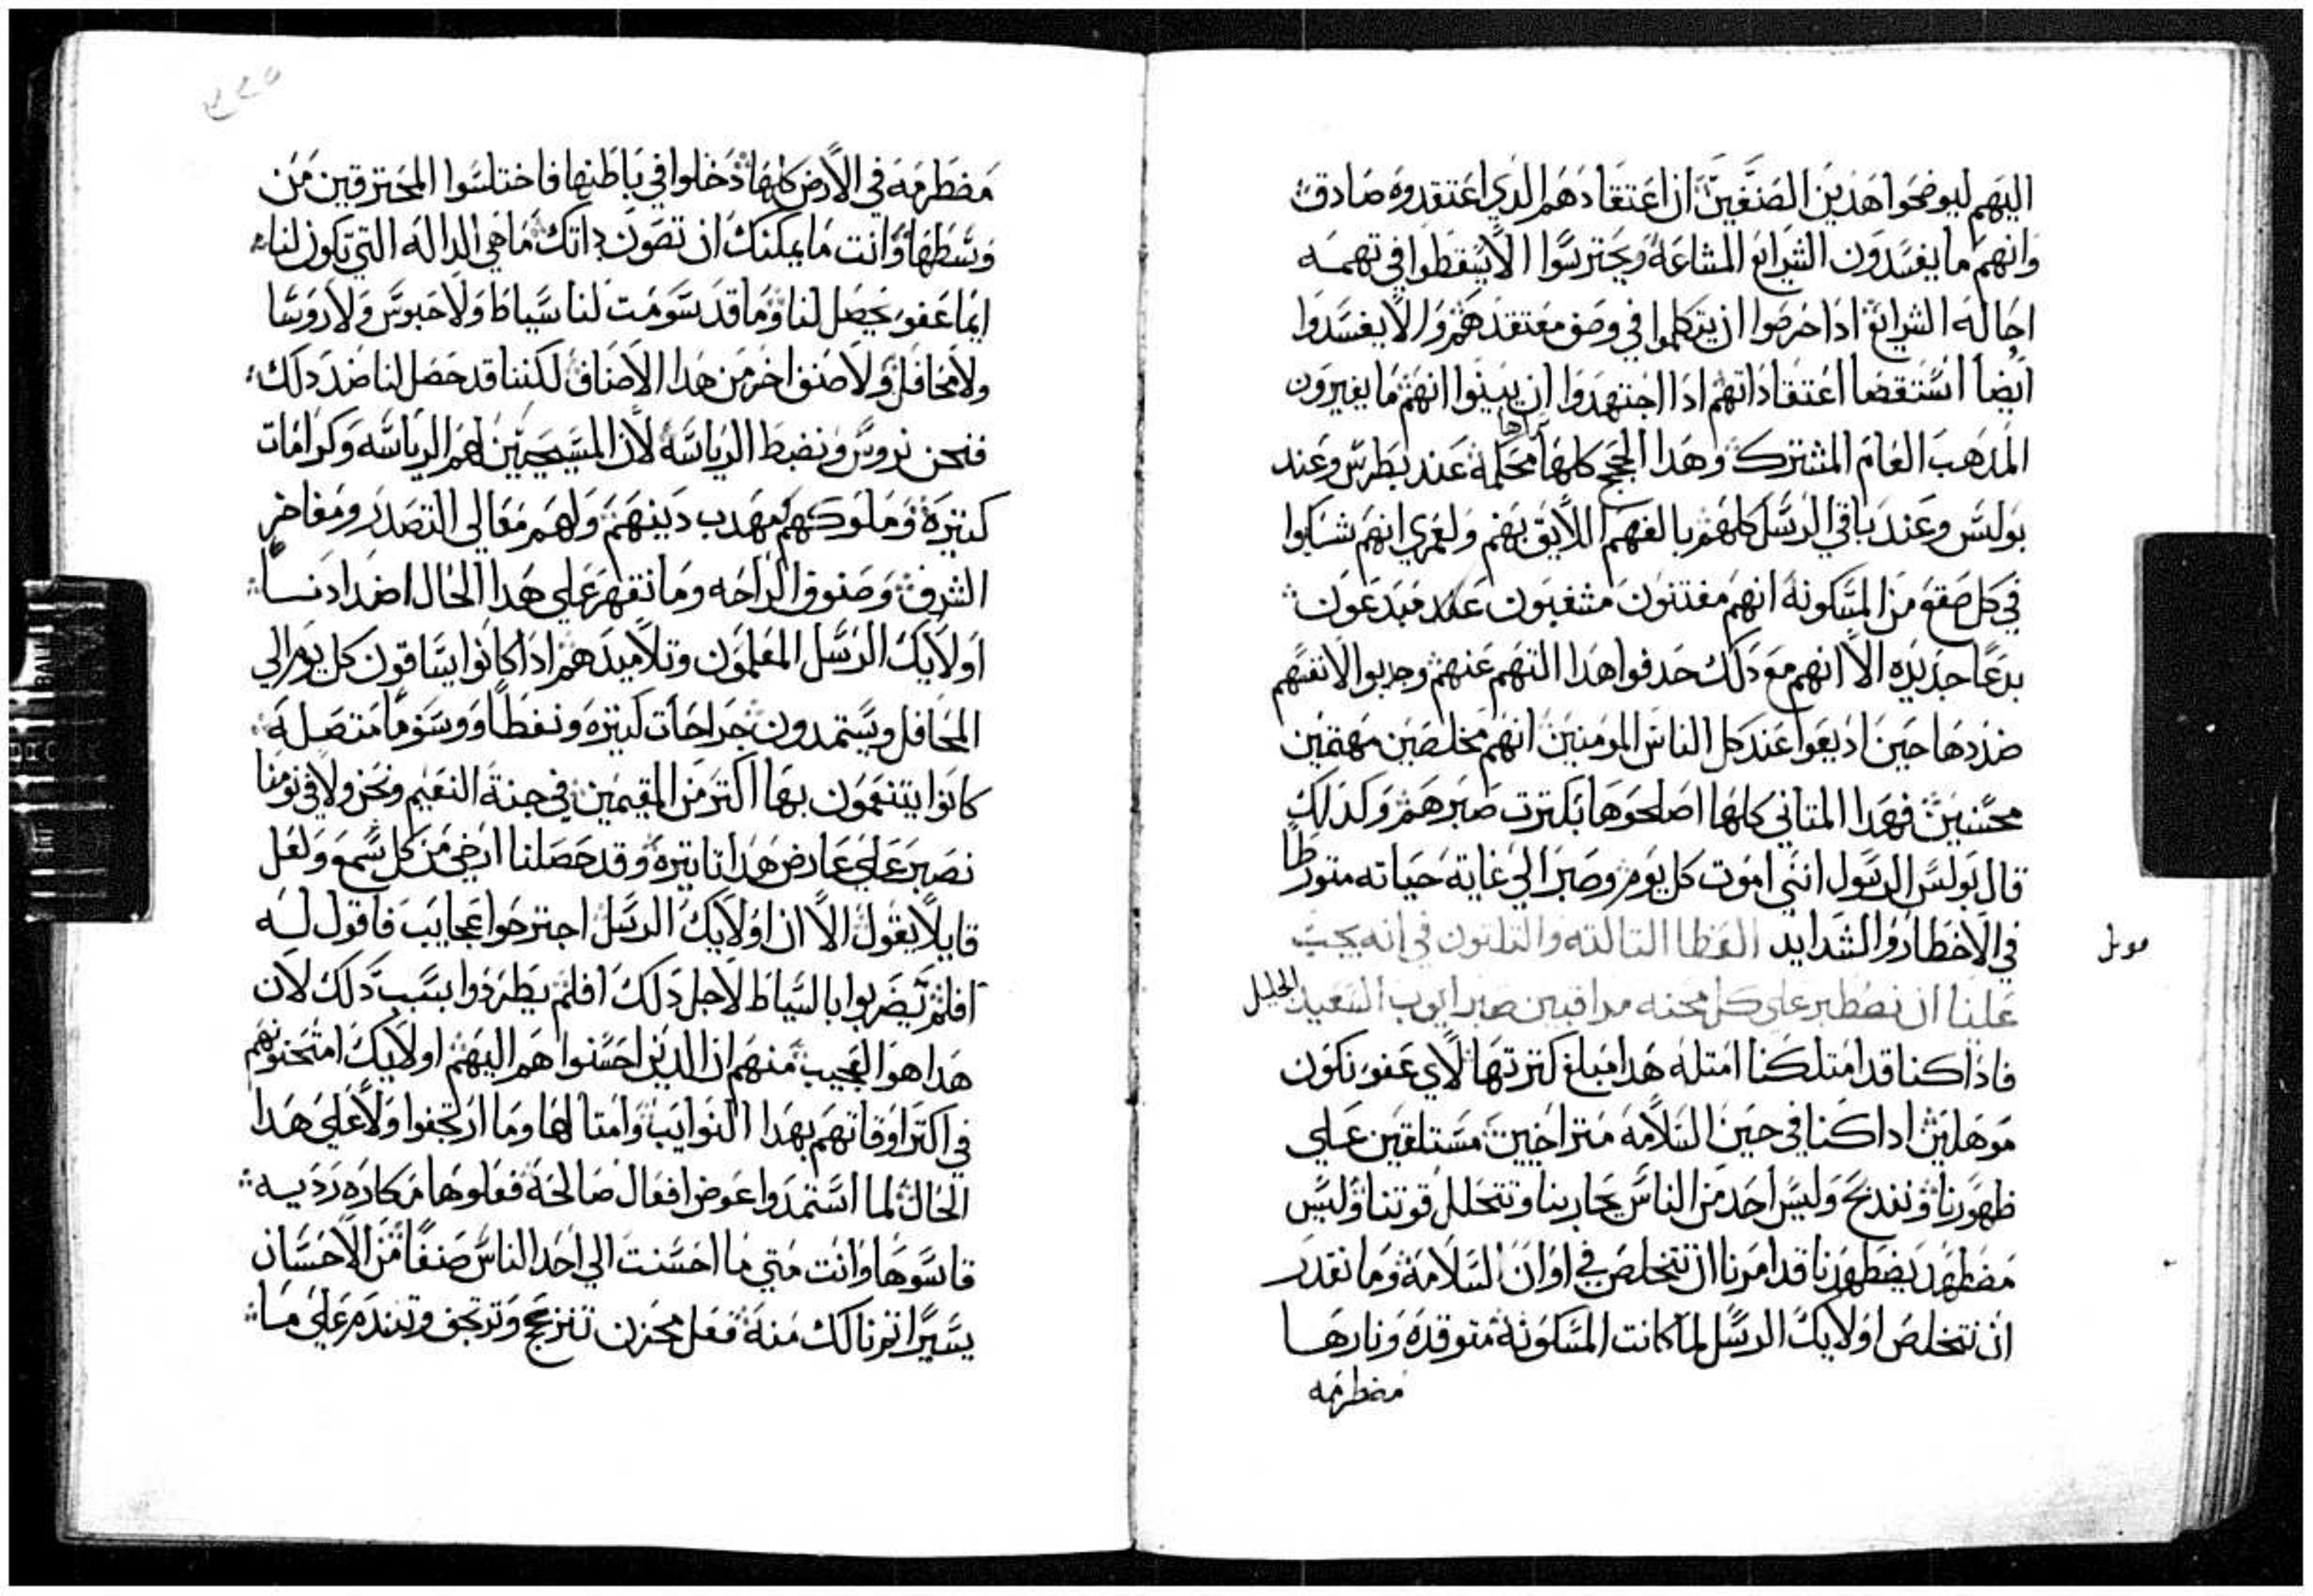 اليهم ليوضحوا هذين الصنفين ان اعتقادهم الدي اعتقدوه صادق
وانهم ما يفسدون الشرايع المشاعة ويحترسوا الا يسقطوا في تهمه
احالة الشرايع ادا حرصوا ان يتكلموا في وصف معتقدهم والا يفسدوا
ايضا استقصا اعتقاداتهم ادا اجتهدوا ان يبينوا انهم ما يغيرون
المدهب العام المشترك وهدا الحجج كلها محكمة عند بطرس وعند
بولس وعند باقي الرسل كلهم بالفهم اللايق بهم ولعمري انهم شكوا
في كل صقع من المسكونة انهم مفتنون مشغبون مبدعون
بدعًا جديده الا انهم مع دلك حدفوا هدا التهم عنهم وجدبوا لانفسهم
ضددها حين اديعوا عند كل الناس المومنين انهم مخلصين مهتمين
محسنين فهدا المتاني كلها اصلحوها بكترت صبرهم وكدلك
قال بولس الرسول انني اموت كل يوم وصبر الي غاية حياته متورطًا
في الاخطار والشدايد العظا التالته والتلتون في انه يجب
علينا ان نصطبر على كل محنه مراقبين صبر ايوب السعيد الجليل
فاداكنا قد امتلكنا امتله هدا مبلغ كترتها لاي عفو نكون
موهلين اداكنا في حين السلامه متراخيين مستلقين علي
ظهورنا ونندبح وليس احد من الناس يحاربنا وتتحلل قوتنا وليس
مضطهد يضطهدنا قد امرنا ان نتخلص في اوان السلامة وما نقدر
ان نتخلص اولايك الرسل لما كانت المسكونة متوقده ونارها
مضطرمه
مضطرمه في الارض كلها دخلوا في باطنها فاختلسوا المحترقين من
وسطها وانت ما يمكنك ان تصون داتك ما هي الدالة التي تكون لنا
ايما عفو يحصل لنا وما قد سومت لنا سياط ولا حبوس ولا روسا
ولا محافل ولا صنف اخر من هدا الاصناف لكننا قد حصل لنا ضد دلك
فنحن نروس ونضبط الرياسة لان المسيحيين لهم الرياسه وكرامات
كتيرة وملوكهم مهدب دينهم ولهم معالي التصدر ومفاخر
الشرف وصنوف الراحه وما نقهر علي هدا الحال اضدادنا
اولايك الرسل المعلمون وتلاميدهم اداكانوا يساقون كل يوم الي
المحافل ويستمدون جراحات كتيره ونفطًا ووسومًا متصله
كانوا يتنعمون بها اكتر من المقيمين في جنة النعيم ونحن ولا في نومنا
نصبر علي عارض هدا تاتيره وقد حصلنا ارخي من كل شمع ولعل
قايلًا يقول الا ان اولايك الرسل اجترحوا عجايب فاقول له
افلم يضربوا بالسياط لاجل دلك افلم يطردوا بسبب دلك لان
هدا هو العجيب منهم ان الدين احسنوا هم اليهم اولايك امتحنونهم
في اكتر اوقاتهم بهدا النوايب وامتالها وما ارتجفوا ولا علي هدا
الحال لما استمدوا عوض افعال صالحة فعلوها مكاره رديه
قاسوها وانت متي ما احسنت الي احد الناس صنفًا من الاحسان
يسيرًا تم نالك منة فعل محزن تنزعج وترتجف وتندم علي ما